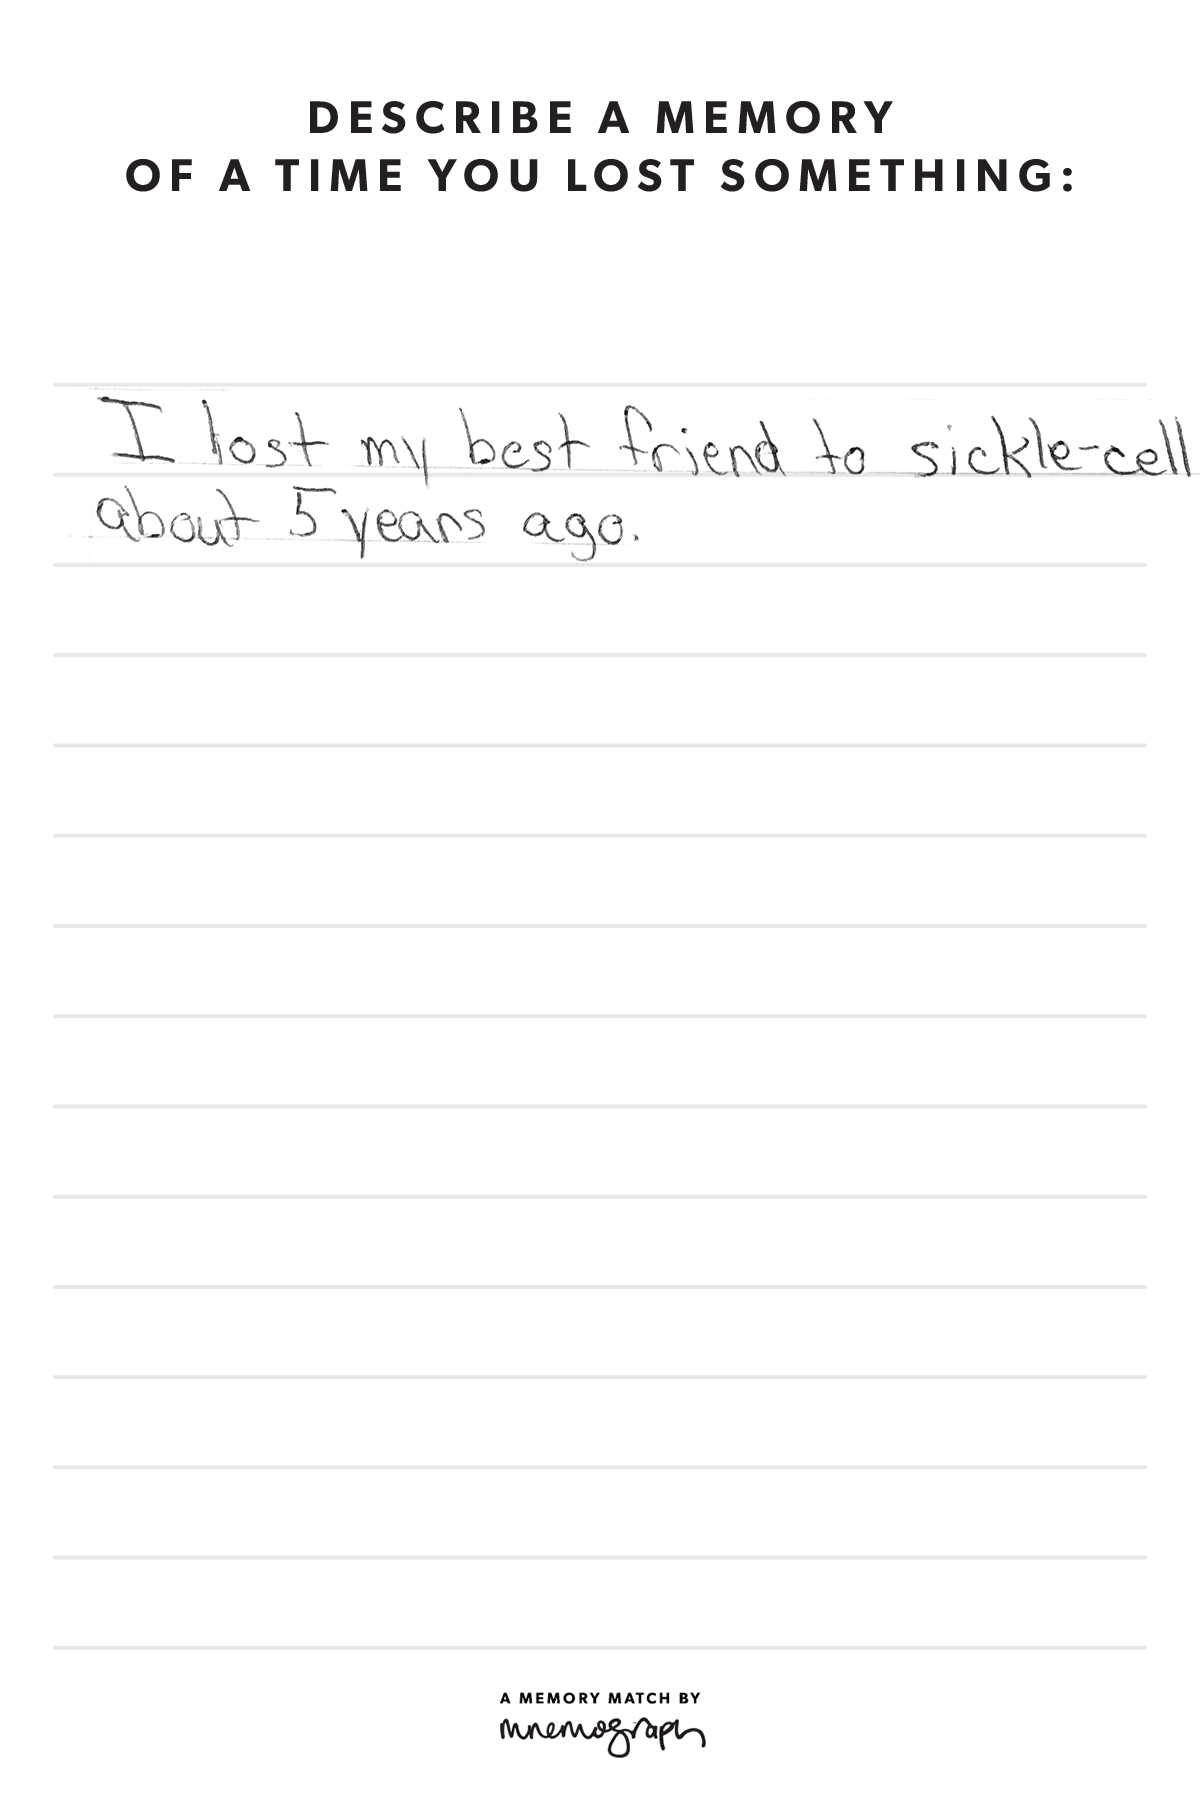 DESCRIBE A MEMORY
OF A TIME YOU LOST SOMETHING:
I lost my best friend to sickle-cell
about 5 years ago.
A MEMORY MATCH BY
mnemograph